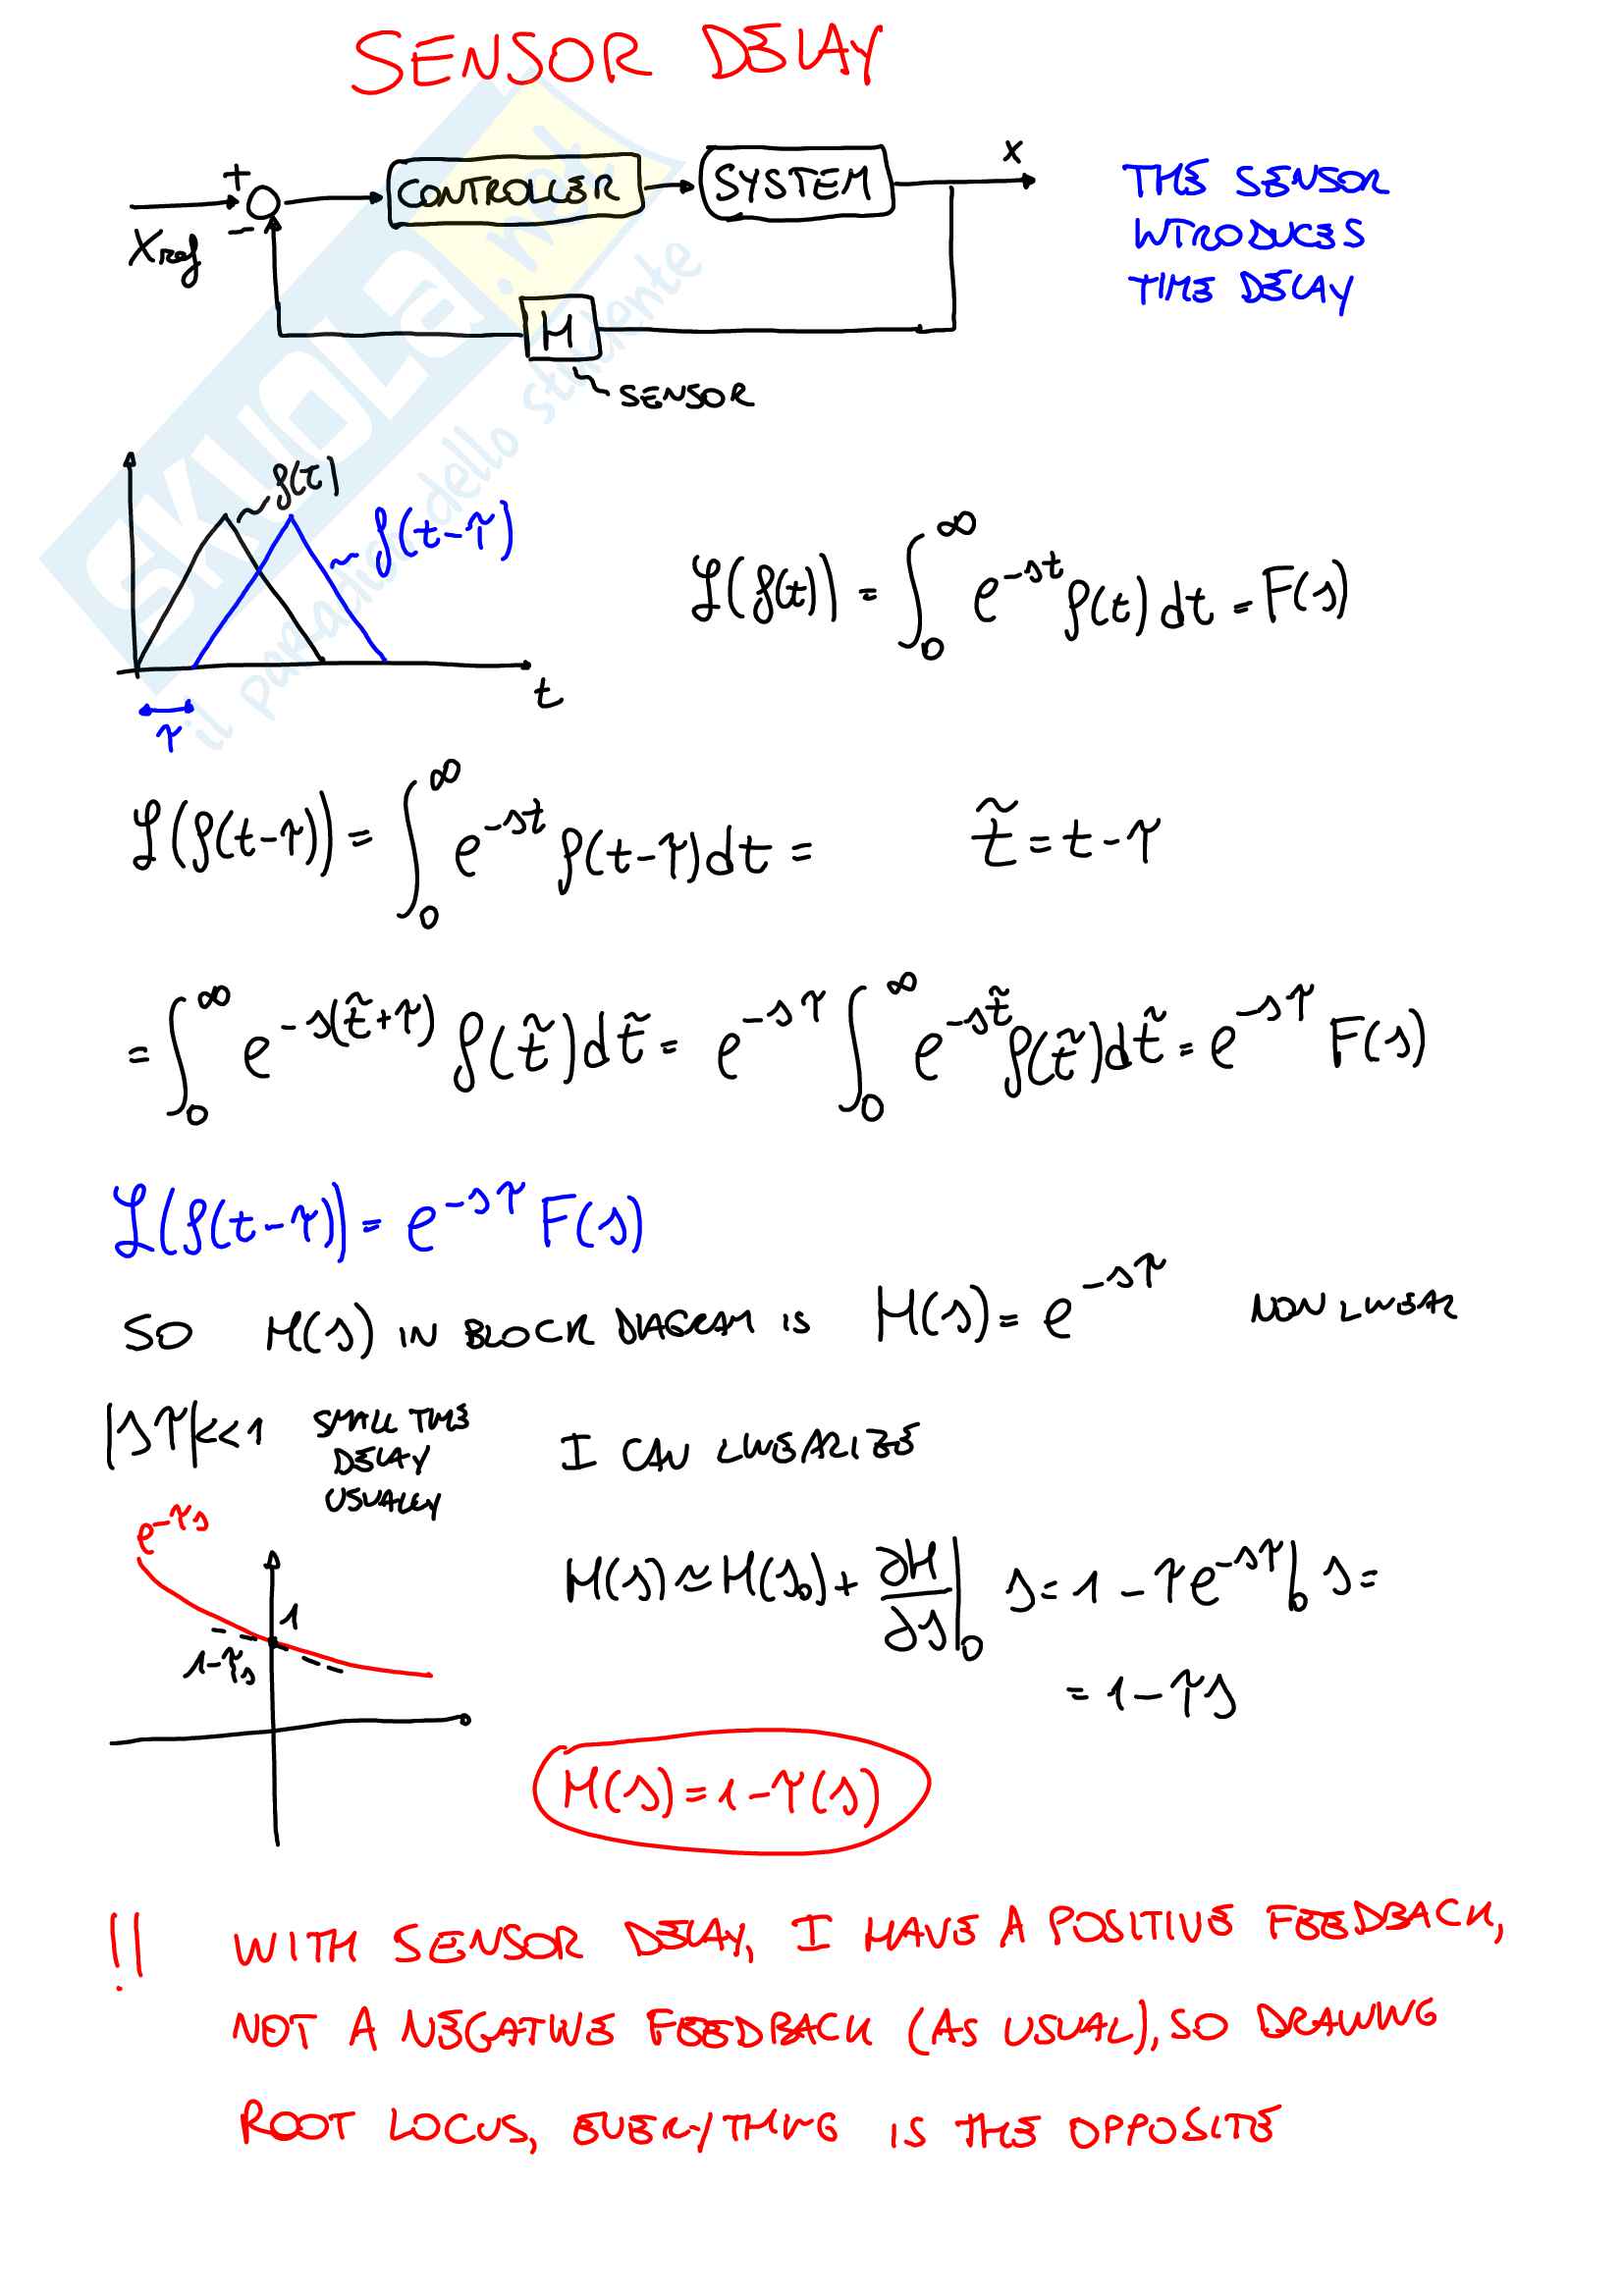 SENSOR DELAY
+
CONTROLLER
SYSTEM
x
Xref
-
H
SENSOR
THE SENSOR
INTRODUCES
TIME DELAY
SKUOLA.net
il paradiso dello studente
f(t)
f(t-τ)
t
τ
ℒ(f(t)) = ∫₀^∞ e^{-st} f(t) dt = F(s)
ℒ(f(t-τ)) = ∫₀^∞ e^{-st} f(t-τ) dt = t̃ = t-τ
= ∫₀^∞ e^{-s(t̃+τ)} f(t̃) dt̃ = e^{-sτ} ∫₀^∞ e^{-st̃} f(t̃) dt̃ = e^{-sτ} F(s)
ℒ(f(t-τ)) = e^{-sτ} F(s)
SO H(s) IN BLOCK DIAGRAM IS H(s) = e^{-sτ} NON LINEAR
|sτ|<<1 SMALL TIME
DELAY
USUALLY
I CAN LINEARIZE
e^{-τs}
1
1-τs
H(s) ≃ H(s₀) + ∂H/∂s|₀ s = 1 - τe^{-sτ}|₀ s =
= 1 - τs
H(s) = 1 - τ(s)
!! WITH SENSOR DELAY, I HAVE A POSITIVE FEEDBACK,
NOT A NEGATIVE FEEDBACK (AS USUAL), SO DRAWING
ROOT LOCUS, EVERYTHING IS THE OPPOSITE